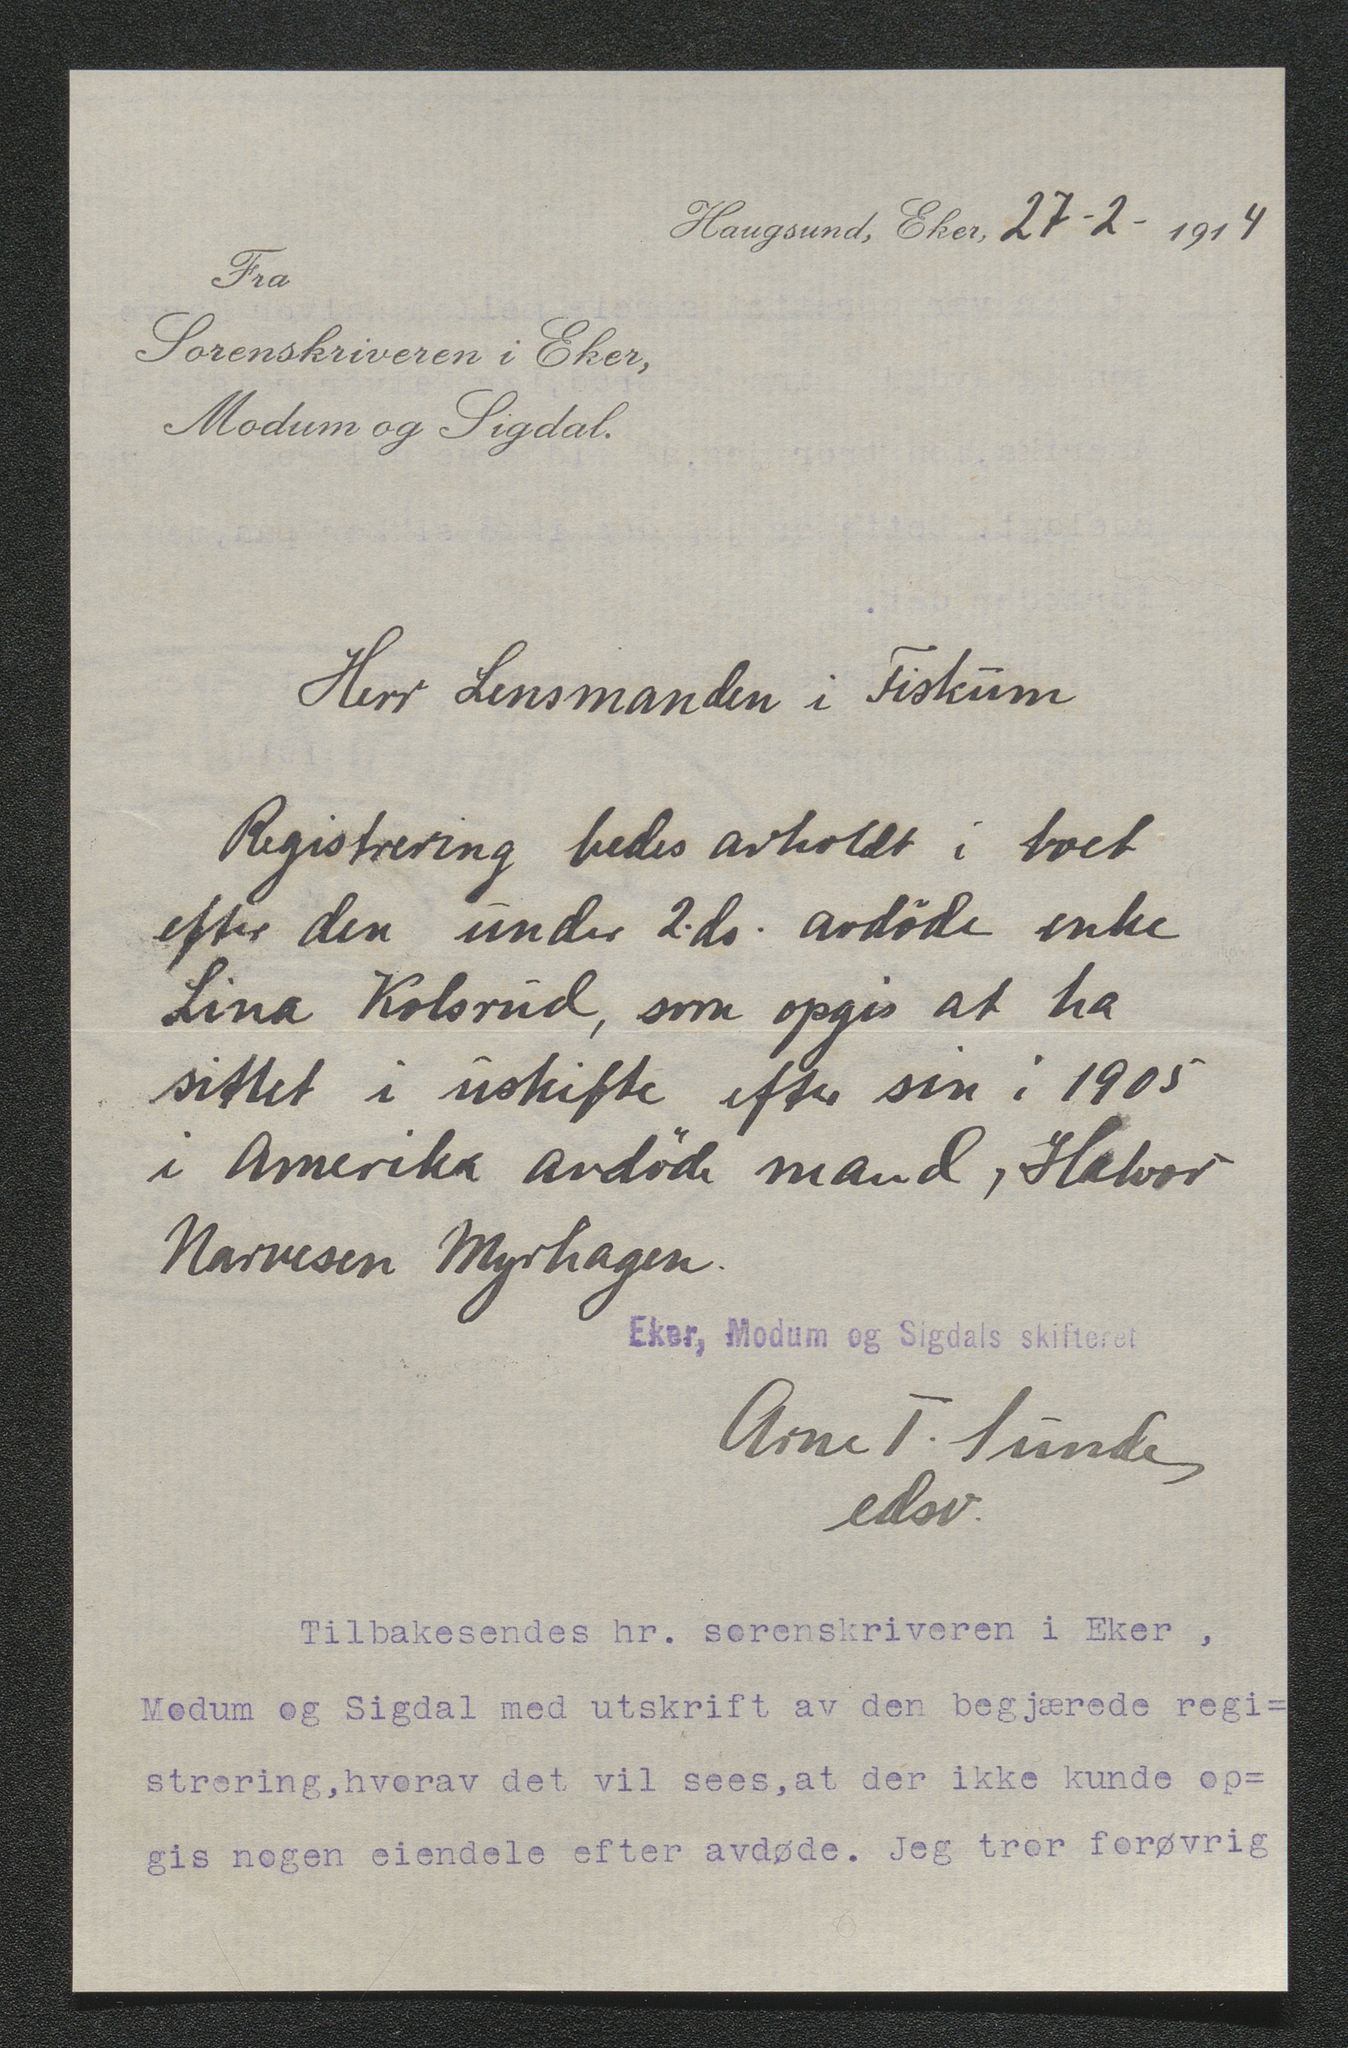 Haugsund, Eker, 27-2- 1914
Fra
Sorenskriveren i Eker,
Modum og Sigdal.
Herr Lensmanden i Fiskum
Registrering bedes avholdt i boet
efter den under 2. ds. avdöde enke
Lina Kolsrud, som opgis at ha
sittet i uskifte efter sin i 1905
i Amerika avdöde mand, Halvor
Narvesen Myrhagen.
Eker, Modum og Sigdals skifteret
Arne T. Sunde
edsv.
Tilbakesendes hr. sorenskriveren i Eker ,
Modum og Sigdal med utskrift av den begjærede regi=
strering,hvorav det vil sees,at der ikke kunde op=
gis nogen eiendele efter avdøde. Jeg tror forøvrig